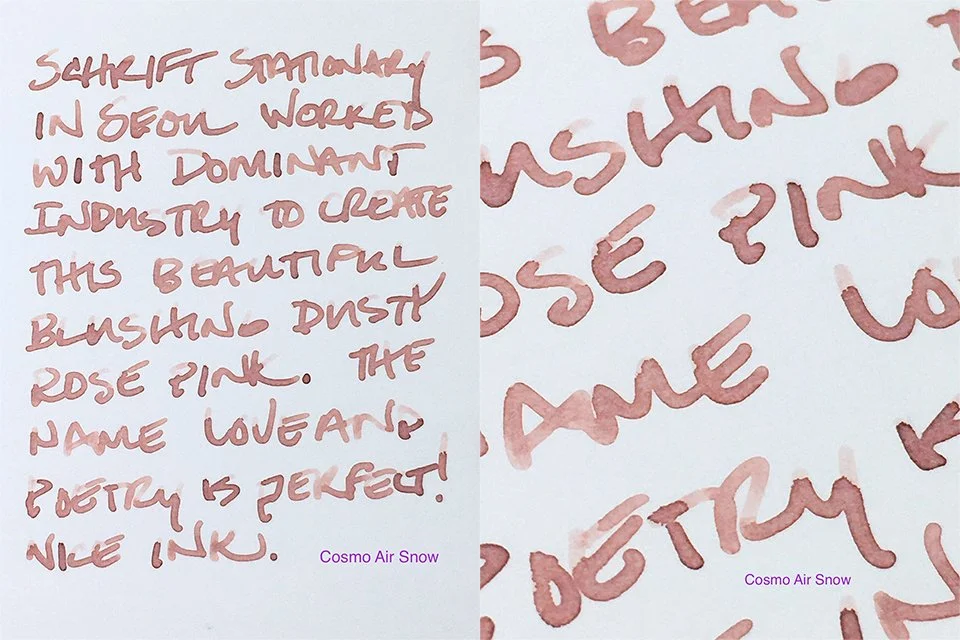 SCHRIFT STATIONARY
IN SEOUL WORKED
WITH DOMINANT
INDUSTRY TO CREATE
THIS BEAUTIFUL
BLUSHING DUSTY
ROSE PINK. THE
NAME LOVE AND
POETRY IS PERFECT!
NICE INK.
Cosmo Air Snow
S BEA
USHING D
OSE PINK
AME LO
POETRY IS
IN
Cosmo Air Snow